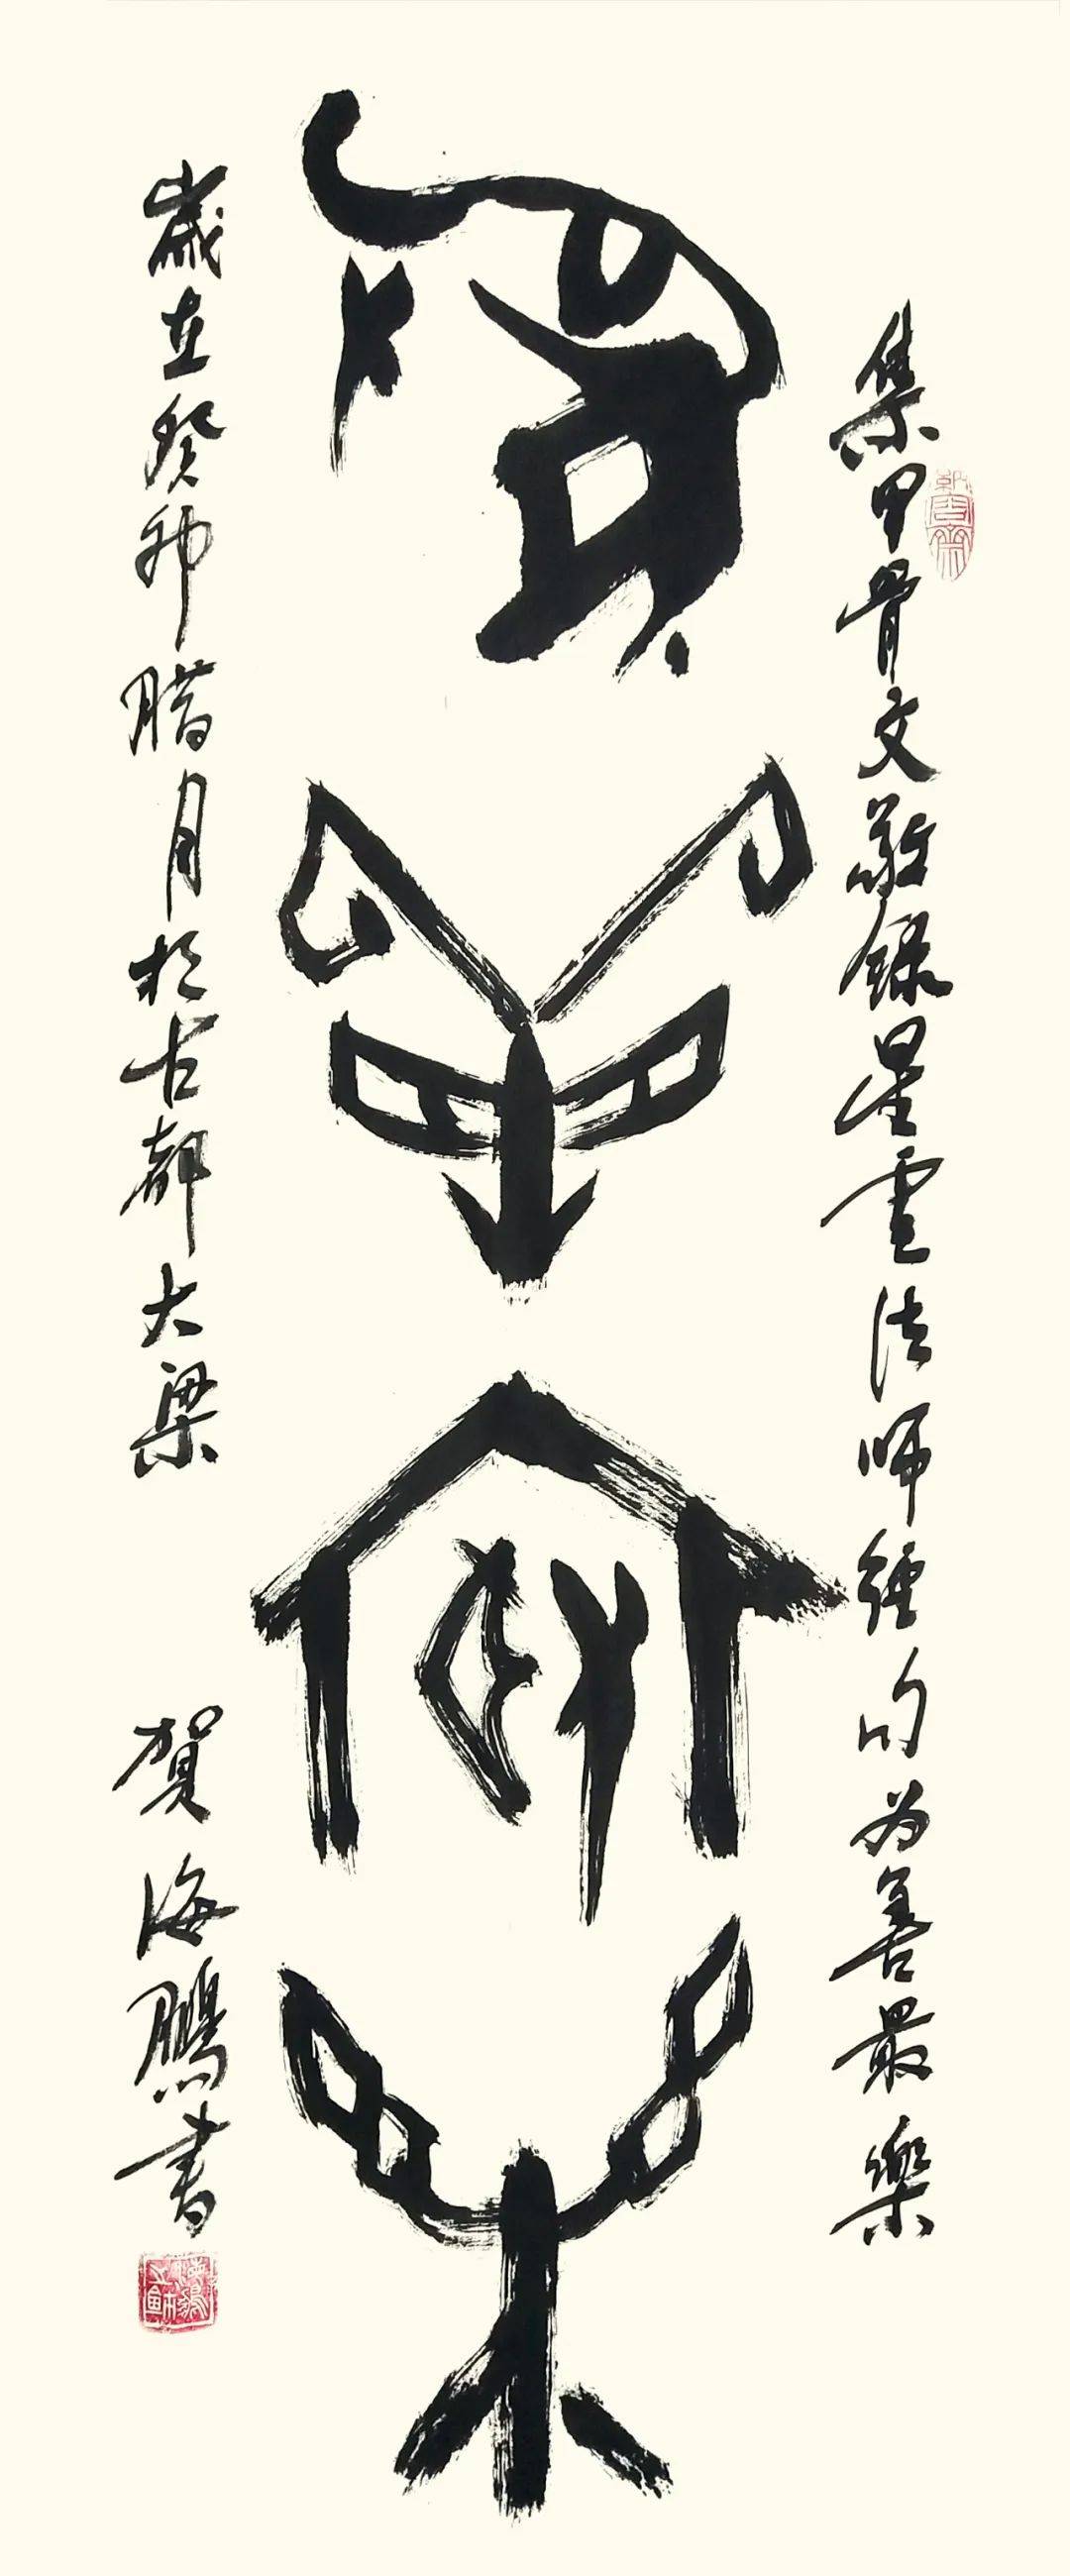 集甲骨文敬録星雲法師經句為善最樂
為善最樂
歲在癸卯腊月於古都大梁
賀海鵬書